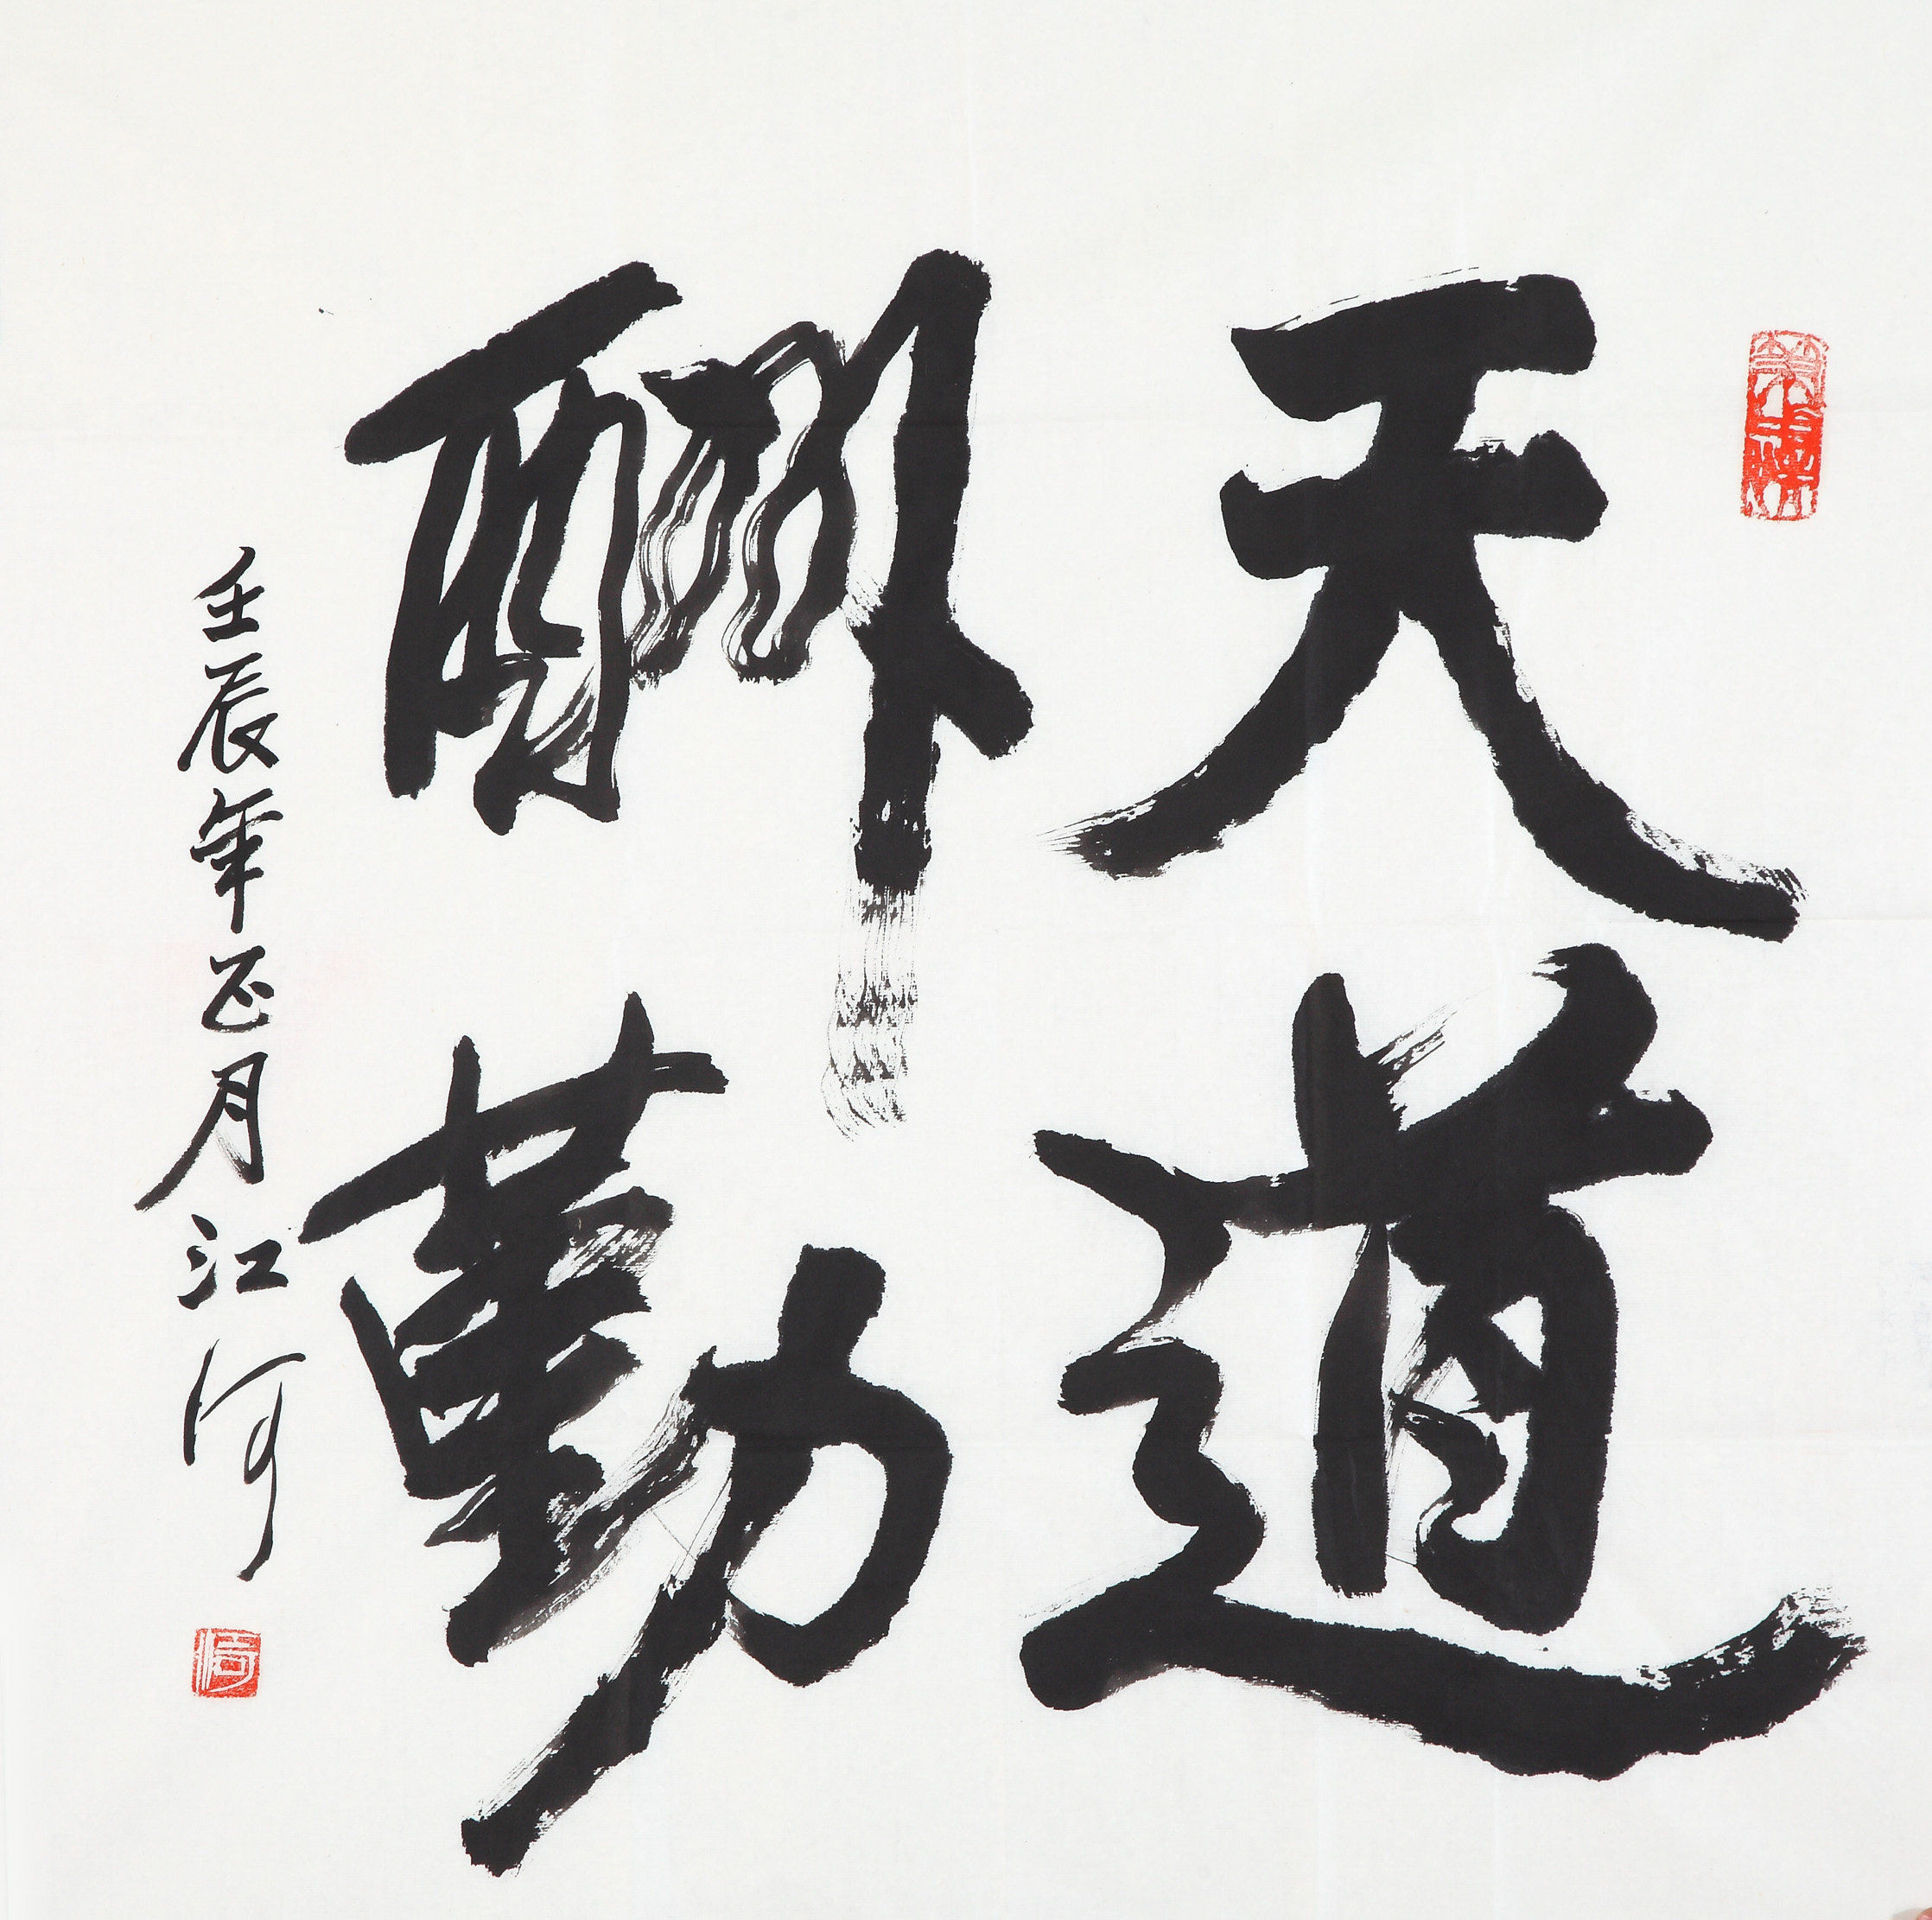 天道
酬勤
壬辰年正月江河